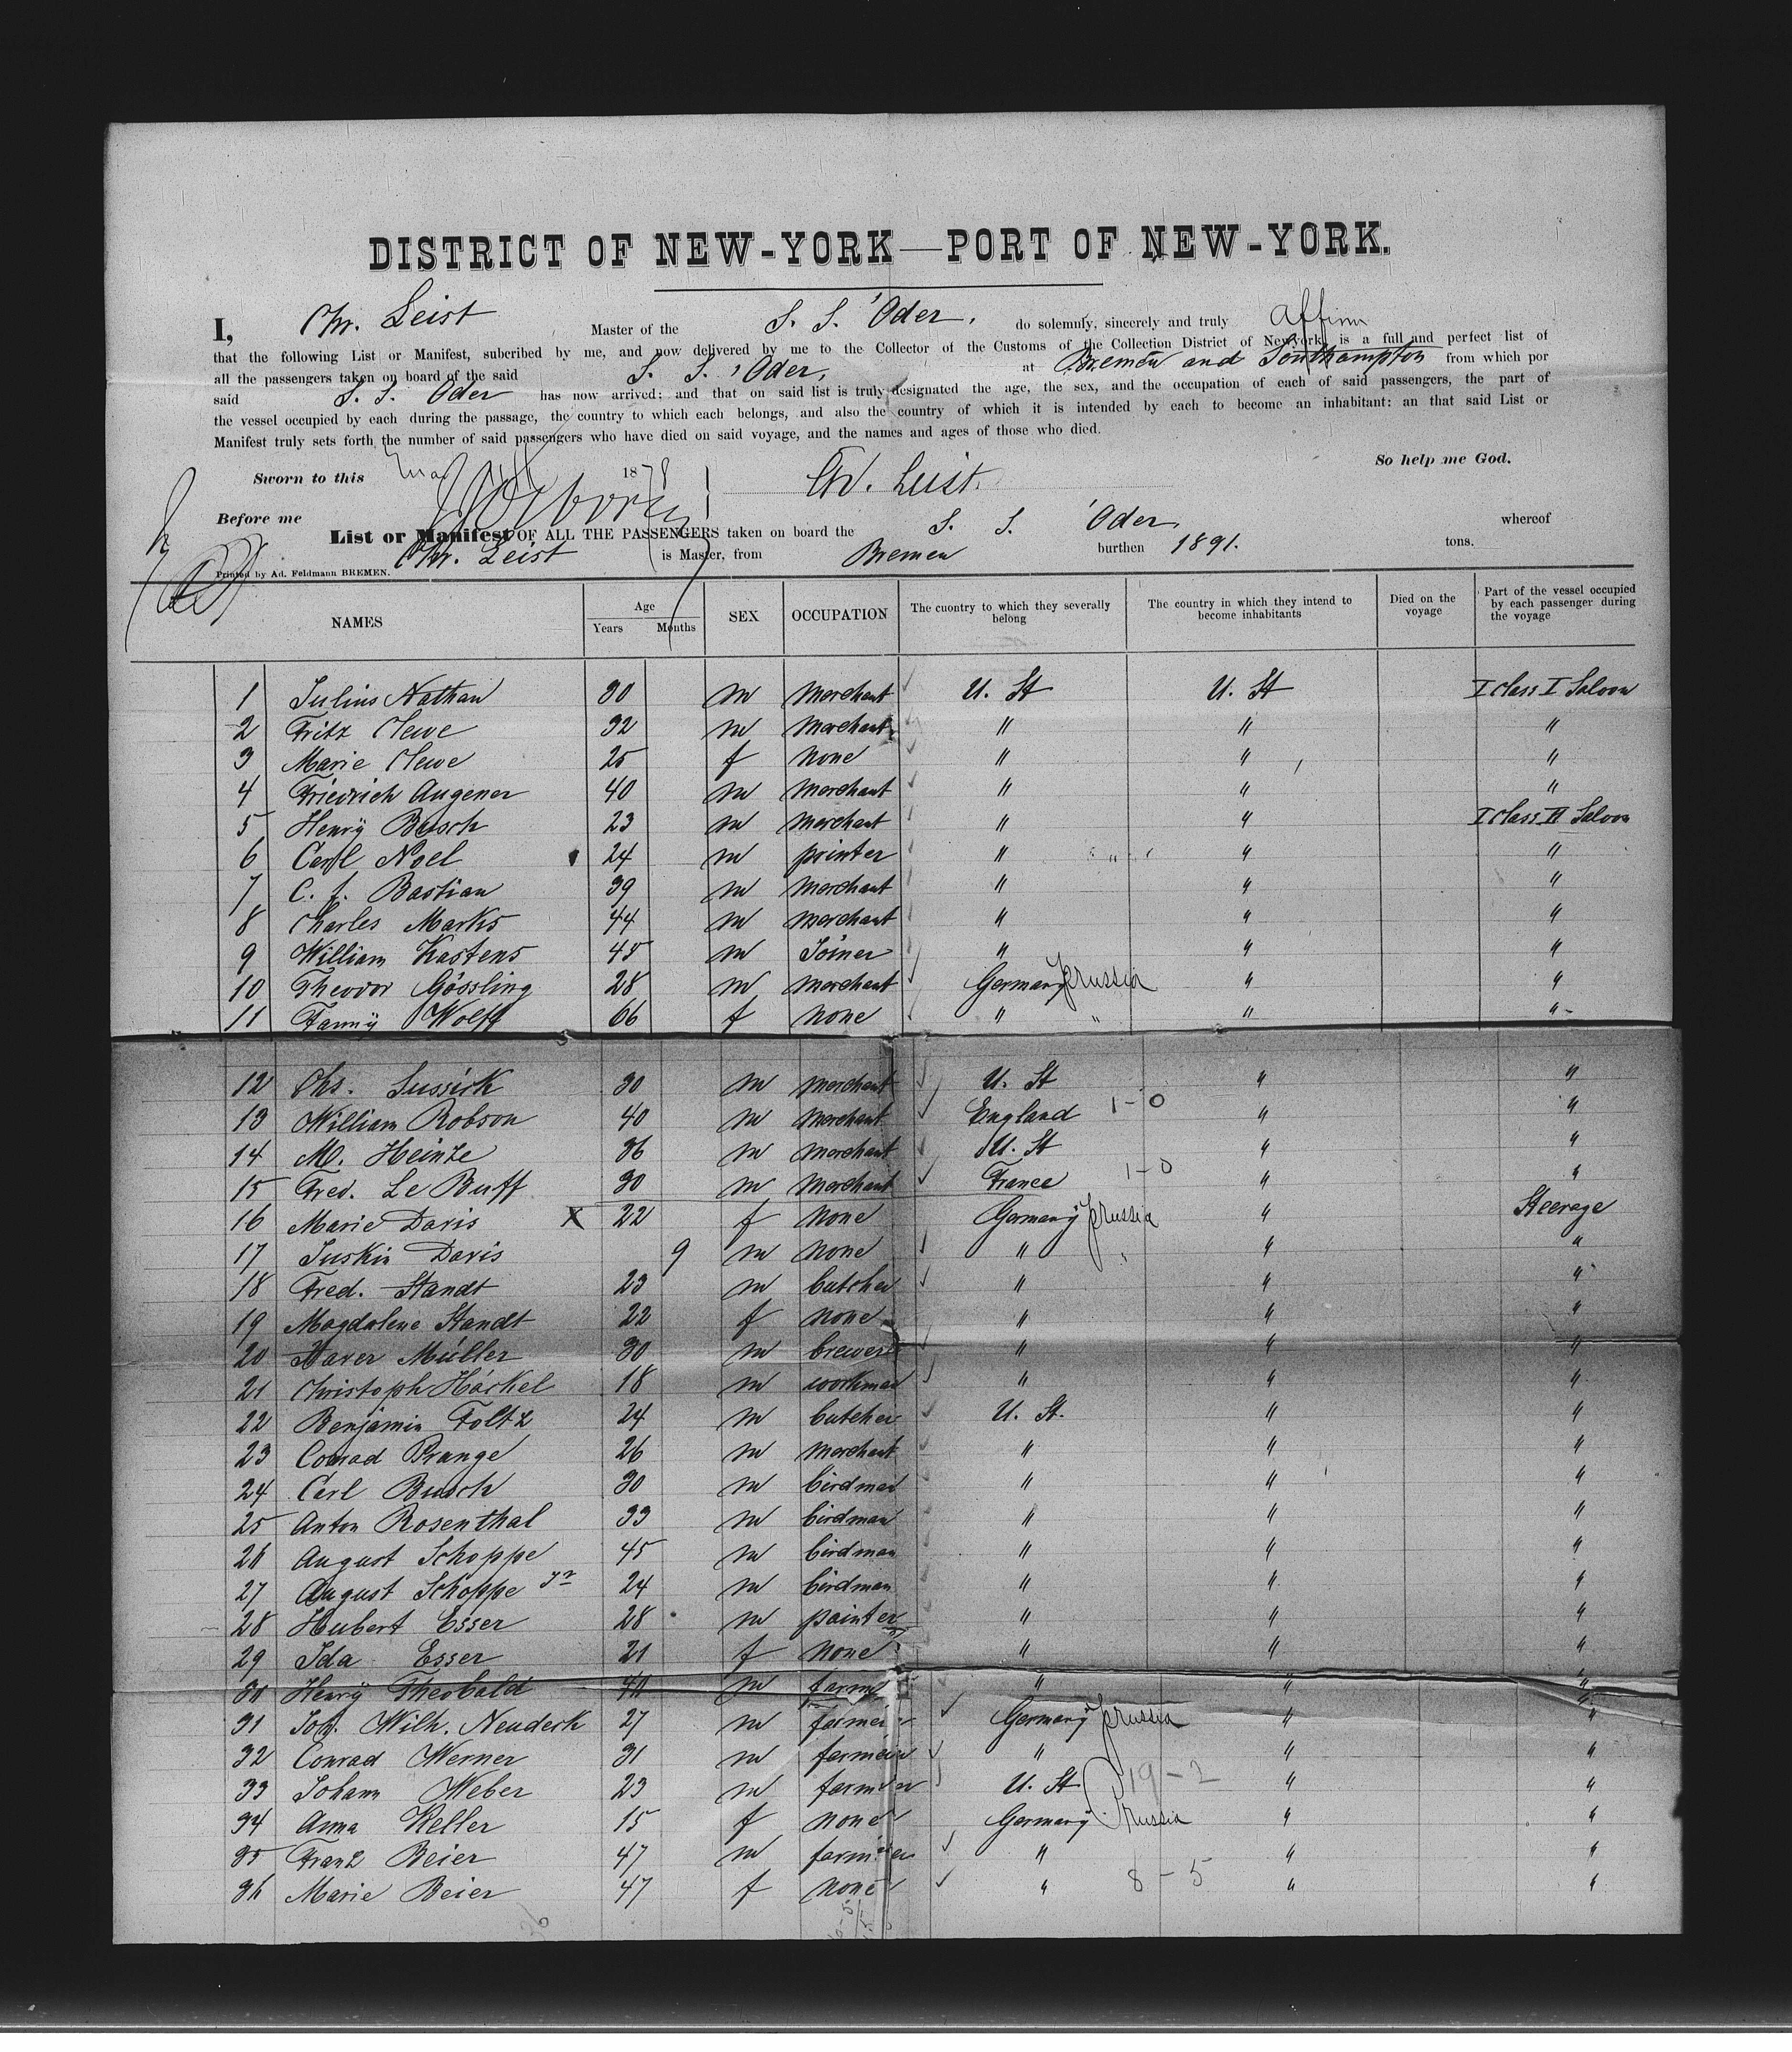 DISTRICT OF NEW-YORK—PORT OF NEW-YORK.
I, Chr. Leist Master of the S. S. 'Oder, do solemnly, sincerely and truly affirm
that the following List or Manifest, subcribed by me, and now delivered by me to the Collector of the Customs of the Collection District of Newyork, is a full and perfect list of
all the passengers taken on board of the said S. S. 'Oder, at Bremen and Southampton from which por
said S. S. Oder has now arrived; and that on said list is truly designated the age, the sex, and the occupation of each of said passengers, the part of
the vessel occupied by each during the passage, the country to which each belongs, and also the country of which it is intended by each to become an inhabitant: an that said List or
Manifest truly sets forth the number of said passengers who have died on said voyage, and the names and ages of those who died.
So help me God.
Sworn to this 1878 Chr. Leist.
Before me
List or Manifest OF ALL THE PASSENGERS taken on board the S. S. 'Oder, whereof
Chr. Leist is Master, from Bremen burthen 1891. tons.
Printed by Ad. Feldmann BREMEN.
NAMES Age Years Months SEX OCCUPATION The cuontry to which they severally belong The country in which they intend to become inhabitants Died on the voyage Part of the vessel occupied by each passenger during the voyage
1 Julius Nathan 30 m merchant U. St U. St I class I Saloon
2 Fritz Clewe 32 m merchant " " "
3 Marie Clewe 25 f none " " "
4 Friedrich Augener 40 m merchant " " "
5 Henry Busch 23 m merchant " " I class II Saloon
6 Carl Noel 24 m printer " " "
7 C. f. Bastian 39 m merchant " " "
8 Charles Marks 44 m merchant " " "
9 William Kastens 45 m Joiner " " "
10 Theodor Gössling 28 m merchant Germany Prussia " "
11 Fanny Wolff 66 f none " " " "
12 Chs. Lussick 30 m merchant U. St " "
13 William Robson 40 m merchant England 1-0 " "
14 M. Heinze 36 m merchant U. St " "
15 Fred. Le Buff 30 m merchant France 1-0 " "
16 Marie Davis X 22 f none Germany Prussia " Steerage
17 Juskin Davis 9 m none " " " "
18 Fred. Standt 23 m butcher " " "
19 Magdalene Standt 22 f none " " "
20 Xaver Müller 30 m brewer " " "
21 Christoph Häckel 18 m workman " " "
22 Benjamin Foltz 24 m butcher U. St. " "
23 Conrad Prange 26 m merchant " " "
24 Carl Busch 30 m birdman " " "
25 Anton Rosenthal 33 m birdman " " "
26 August Schoppe 45 m birdman " " "
27 August Schoppe Jr 24 m birdman " " "
28 Hubert Esser 28 m painter " " "
29 Ida Esser 21 f none " " "
30 Henry Theobald m " " "
31 Joh. Wilh. Neudeck 27 m farmer Germany Prussia " "
32 Conrad Werner 31 m farmer " " "
33 Johann Weber 23 m farmer U. St 19-2 " "
34 Anna Keller 15 f none Germany Prussia " "
35 Franz Beier 47 m farmer " " "
36 Marie Beier 47 f none " 8-5 " "
36